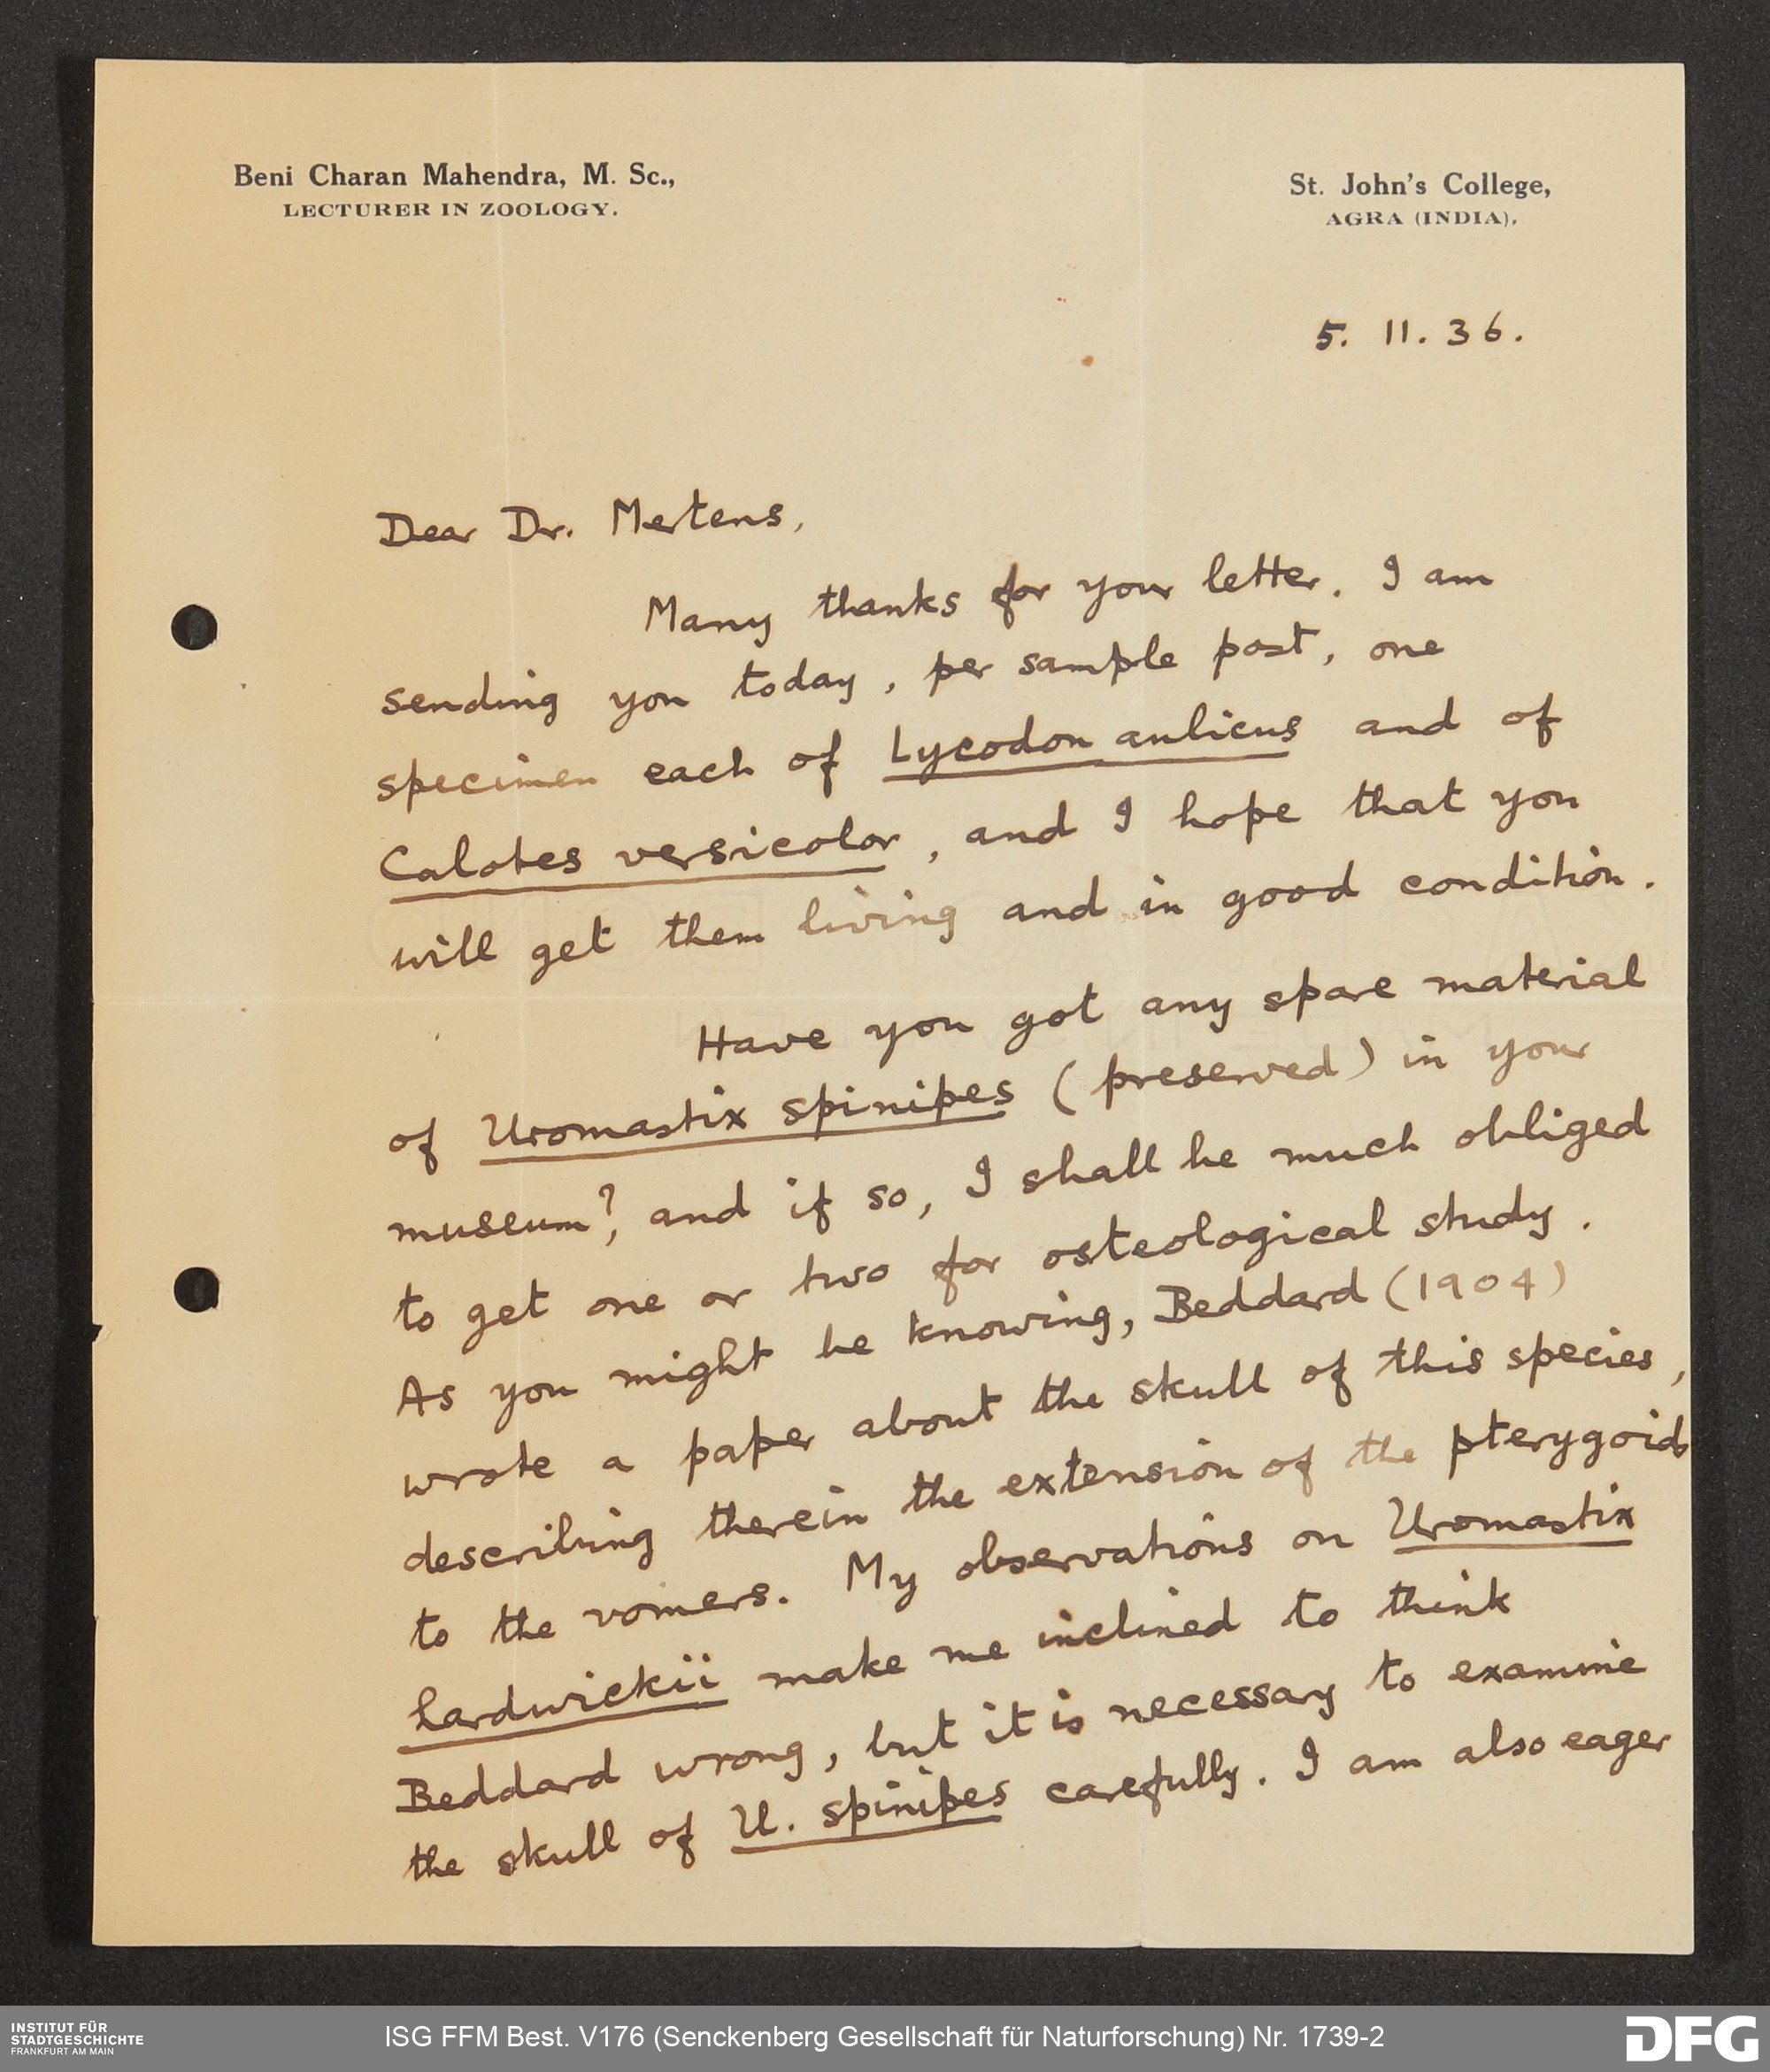 Beni Charan Mahendra, M. Sc.,
LECTURER IN ZOOLOGY.
St. John's College,
AGRA (INDIA).
5. 11. 36.
Dear Dr. Mertens,
Many thanks for your letter. I am
sending you today, per sample post, one
specimen each of Lycodon aulicus and of
Calotes versicolor, and I hope that you
will get them living and in good condition.
Have you got any spare material
of Uromastix spinipes (preserved) in your
museum?, and if so, I shall be much obliged
to get one or two for osteological study.
As you might be knowing, Beddard (1904)
wrote a paper about the skull of this species,
describing therein the extension of the pterygoids
to the vomers. My observations on Uromastix
hardwickii make me inclined to think
Beddard wrong, but it is necessary to examine
the skull of U. spinipes carefully. I am also eager
INSTITUT FÜR
STADTGESCHICHTE
FRANKFURT AM MAIN
ISG FFM Best. V176 (Senckenberg Gesellschaft für Naturforschung) Nr. 1739-2
DFG